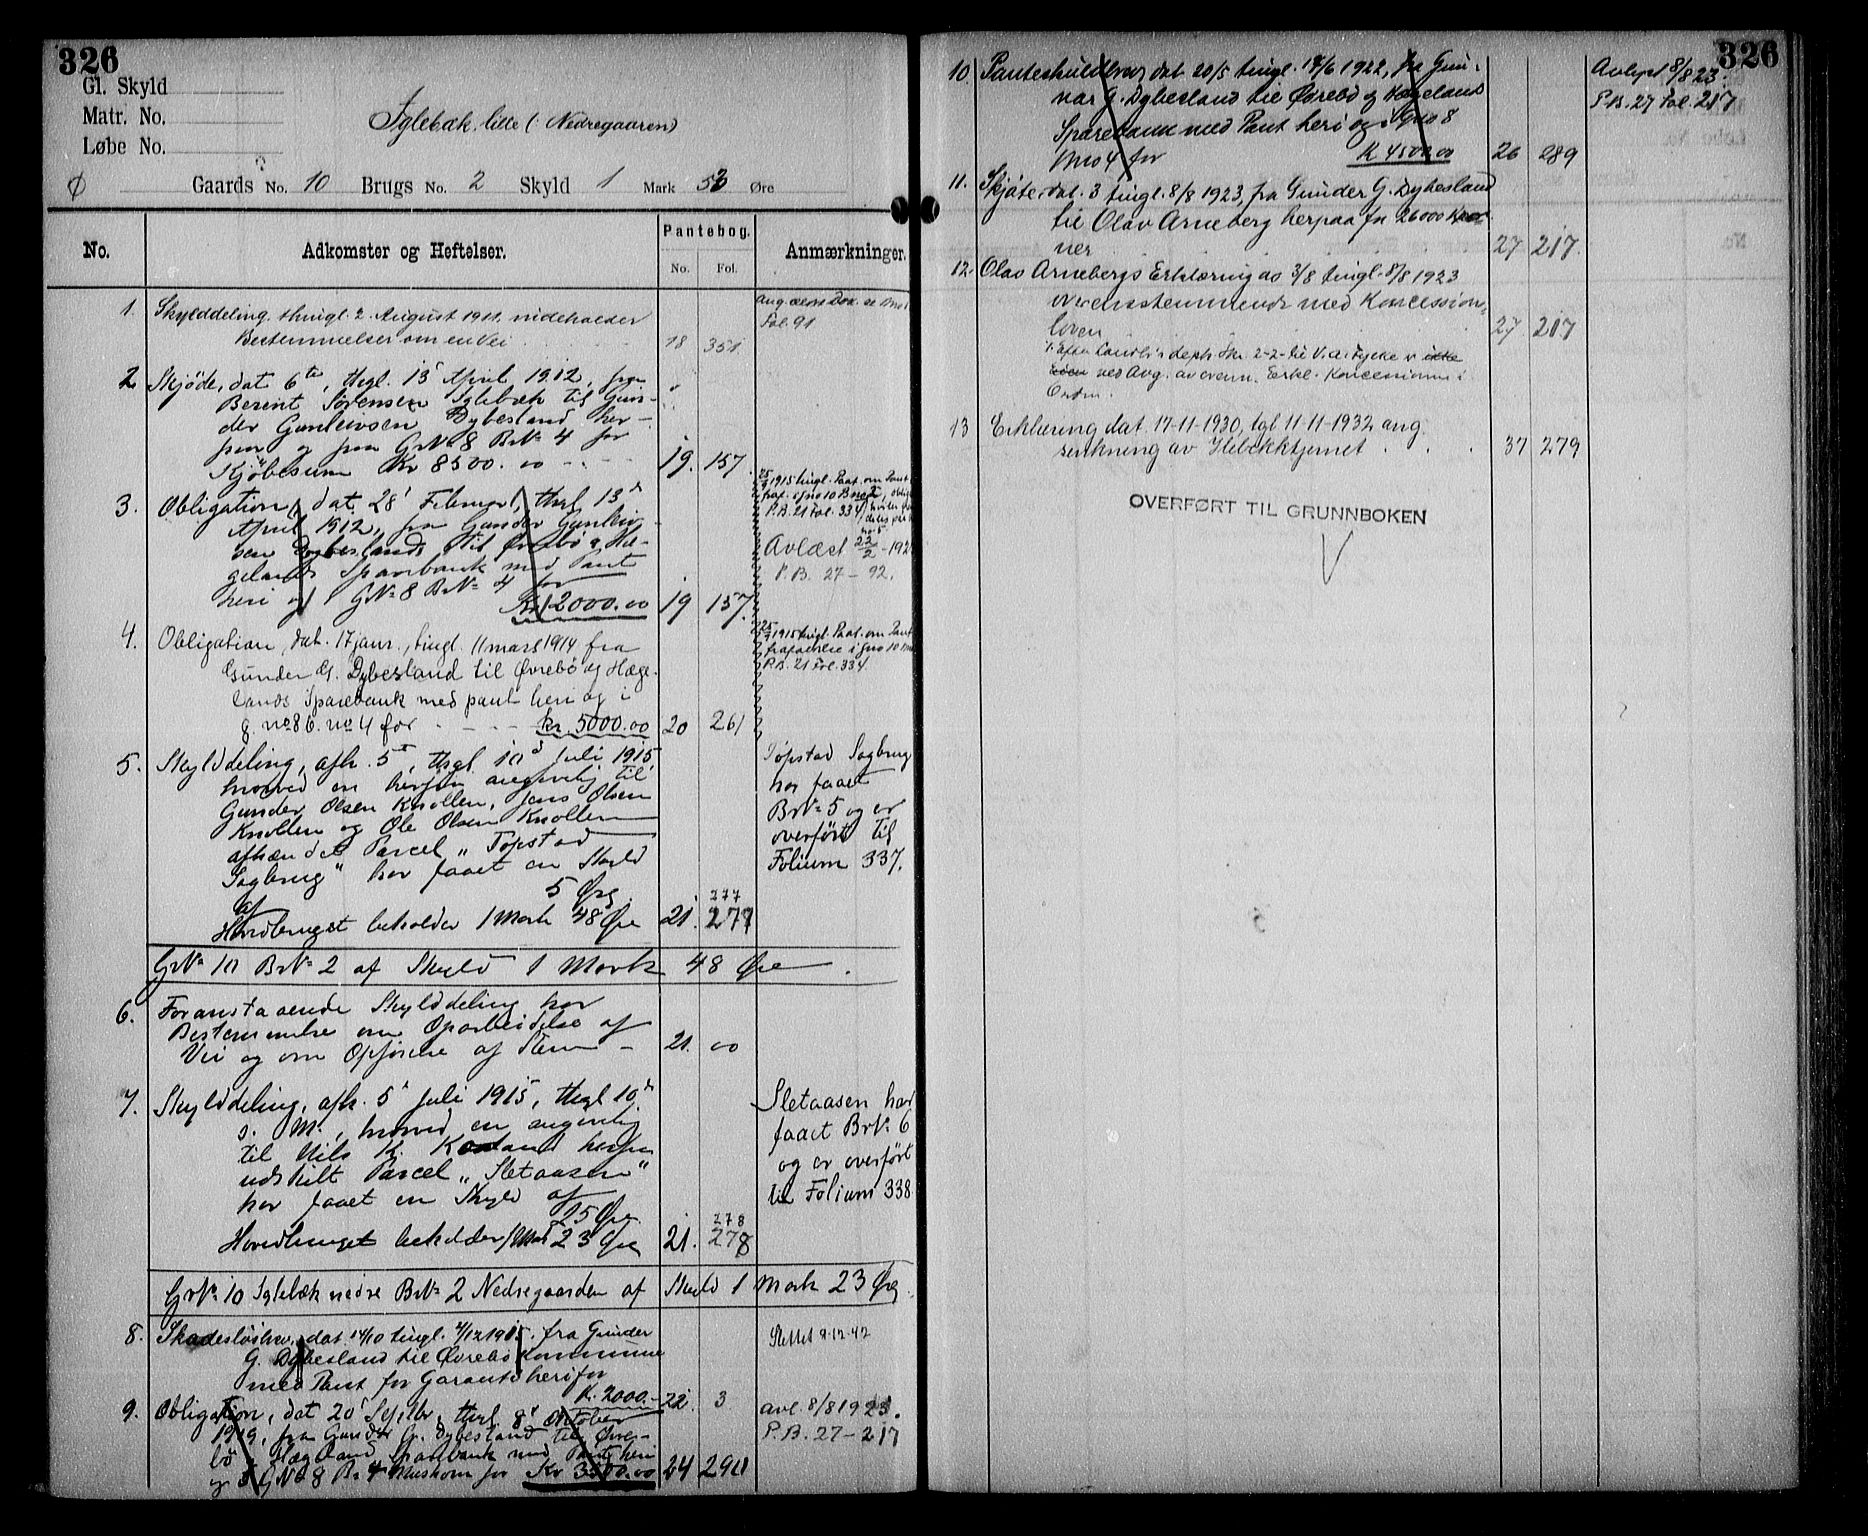 326
Gl. Skyld
Matr. No.
Løbe No.
Iglebæk lille (Nedregaaren)
Ø Gaards No. 10 Brugs No. 2 Skyld 1 Mark 53 Øre
No. Adkomster og Heftelser. Pantebog. Anmærkninger.
No. Fol.
1. Skylddeling, thingl. 2. August 1911. indeholder
Bestemmelser om en Vei 18 351.
Fol. 91
2 Skjøde, dat 6te, thgl. 13 April 1912, fra
Berent Sørensen Iglebæk til Gun-
der Gunleivsen Dybesland her-
paa og paa GrNo 8 BrNo 4 for
Kjøbesum Kr 8500.00 19. 157.
3. Obligation, dat 28 Februar, thgl 13de
April 1912, fra Gunder Gunleiv-
sen Dybesland til Øvrebø & Hæ-
gelands Sparebank med Pant
heri og i GrNo 8 BrNo 4 for
Kr 12000.00 19 157.
1915 tingl. Paat. om Pant
P.B. 21 Fol. 334
Avlæst 22/2 - 192
P.B. 27 - 92.
4. Obligation, dat. 17 janr., tingl. 11 mars 1914 fra
Gunder G. Dybesland til Øvrebø og Hæge-
lands Sparebank med pant heri og i
g. no 8 b. no 4 for kr. 5000.00 20 261
1915 tingl. Paat. om Pant
frafaldelse i gno 10
P.B. 21 Fol. 334.
5. Skylddeling, afh. 5te, thgl. 10de Juli 1915,
hvorved en herfra angivelig til
Gunder Olsen Knollen, Jens Olsen
Knollen og Ole Olsen Knollen
afhændet Parcel „Tøpstad
Sagbrug" har faaet en Skyld
af 5 Øre. 277
Hovedbruget beholder 1 Mark 48 Øre 21. 277
Tøpstad Sagbrug
har faaet
BrNo 5 og er
overført til
Folium 337.
GrNo 10 BrNo 2 af Skyld 1 Mark 48 Øre.
6. Foranstaaende Skylddeling har
Bestemmelse om Oparbeidelse af
Vei og om Opførelse af Stem - 21. oo
7. Skylddeling, afh. 5te Juli 1915, thgl 10de
s. M., hvorved en angivelig
til Nils K. herfra
udskilt Parcel „Sletaasen"
har faaet en Skyld af
25 Øre. 278
Hovedbruget beholder 1 Mark 23 Øre 21. 278
Sletaasen har
faaet BrNo 6
og er overført
til Folium 338
GrNo 10 Iglebæk nedre BrNo 2 Nedregaarden af Skyld 1 Mark 23 Øre.
8. Skadesløsbrev, dat 14/10 tingl. 4/12 1915. fra Gunder
G. Dybesland til Øvrebø Kommune
med Pant for Garanti heri for
K. 2000.- 22. 3
Slettet 9-12-42
9. Obligation, dat 20 Septbr, thgl 8de Oktober
1919, fra Gunder G. Dybesland til Øvre-
bø & Hægeland Sparebank med Pant heri
og i GNo 8 Br 4 Muskom for Kr 3500.00 24 290
avl. 8/8 1923.
P.B. 27 - 217
326
10. Panteskuldbrev dat 20/5 tingl. 14/6 1922, fra Gun-
nar G. Dybesland til Øvrebø og Hægeland
Sparebank med Pant heri og i Gno 8
Bno 4 for K 4500.00 26 289
Avlyst 8/8 23.
P.B. 27 Fol. 217
11. Skjøte, dat. 3 tingl. 8/8 1923, fra Gunder G. Dybesland
til Olav Arneberg herpaa for 26000 Kro-
ner 27 217.
12. Olav Arnebergs Erklæring av 3/8 tingl. 8/8 1923
overensstemmende med Koncessions-
loven 27 217
ved Avg. av ovenn. Erkl. Koncessionen i
Orden.
13 Erklæring dat. 17-11-1930, tgl 11-11-1932 ang.
senkning av Ilebekktjernet . . . 37 279
OVERFØRT TIL GRUNNBOKEN